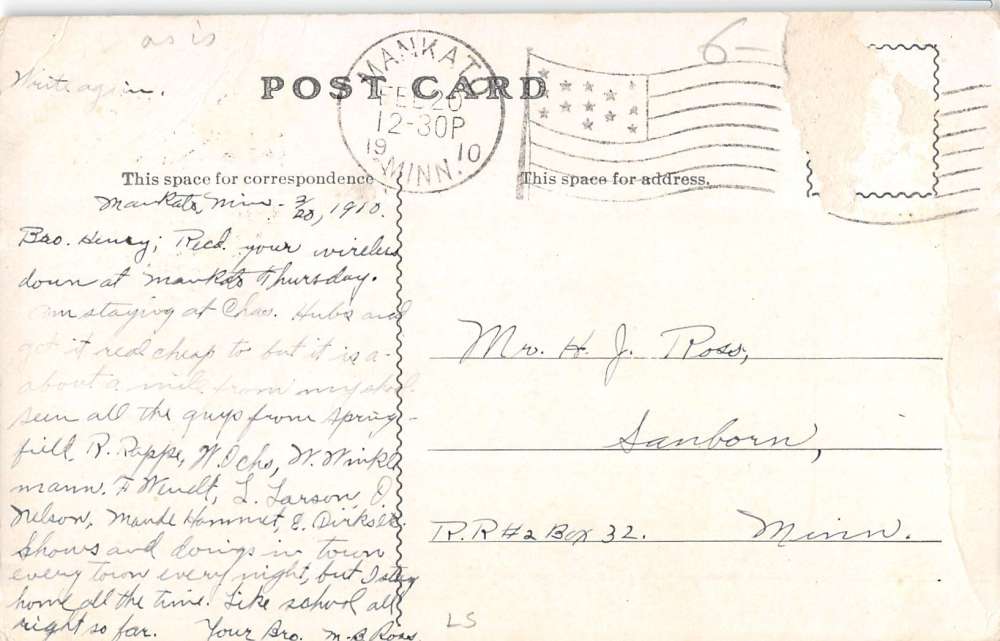 as is
6-
Write again.
POST CARD
MANKATO
FEB 20
12-30P
1910
MINN.
This space for correspondence
This space for address.
Mankato, Minn - 2/20, 1910.
Bro. Henry; Recd. your wireless
down at Mankato Thursday.
Am staying at Chas. Hubs and
got it real cheap to but it is a
about a mile from my
seen all the guys from Spring-
field, R. Rappe, W. Ochs, W. Winkl
mann. F Wendt, L. Larson, O.
Nelson, Maude Hammet, E.
Shows and doings in town
every town every night, but I stay
home all the time. Like school all
right so far. Your Bro. M-B Ross.
Mr. H. J. Ross,
Sanborn,
R. R #2 Box 32. Minn.
LS